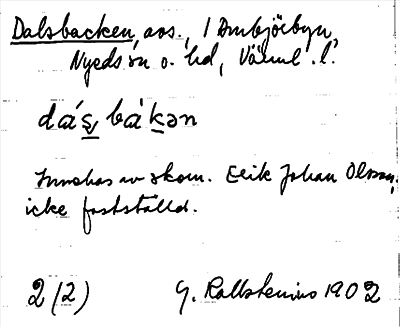 Dalsbacken, avs., i Ambjörbyn,
Nyeds sn o. hd, Värml. l.
dás̬ bákən
Innehas av skom. Erik Johan Olsson,
icke fastställd.
2 (2) G. Kallstenius 1902